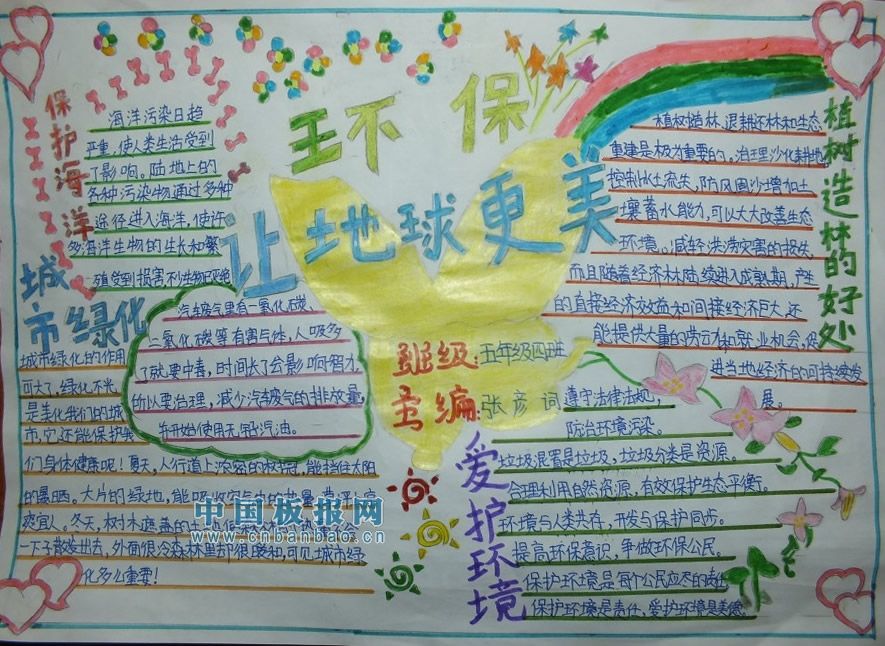 王不 保
让地球更美
保护海洋
海洋污染日趋
严重,使人类生活受到
了影响。陆地上的
各种污染物通过多种
途径进入海洋,使许
多海洋生物的生长和繁
殖受到损害不少生物已死绝
植树造林的好处
植树造林、退耕还林和生态
重建是极为重要的。治理沙化耕地
控制水土流失,防风固沙增加土
壤蓄水能力,可以大大改善生态
环境。减轻洪涝灾害的损失,
而且随着经济林陆续进入成熟期,产
的直接经济效益和间接经济巨大,还
能提供大量的劳动和就业机会,促
进当地经济的可持续发
展。
城市绿化
城市绿化的作用
可大了,绿化不光
是美化我们的城
市,它还能保护我
们身体健康呢!夏天,人行道上浓密的树冠,能挡住太阳
的暴晒。大片的绿地,能吸收空气中的热量
爽宜人。冬天,树木
一下子散发出去,外面很冷森林里却很暖和,可见城市绿
化多么重要!
汽车废气里有一氧化碳、
二氧化碳等有害气体,人吸多
了就要中毒,时间长了会影响智力
所以要治理,减少汽车废气的排放量,
并开始使用无铅汽油。
班级:五年级四班
主编:张彦词
爱护环境
遵守法律法规,
防治环境污染。
垃圾混置是垃圾,垃圾分类是资源。
合理利用自然资源,有效保护生态平衡。
环境与人类共存,开发与保护同步。
提高环保意识,争做环保公民。
保护环境是每个公民应尽的责任
保护环境是责任,爱护环境是美德。
中国板报网
www.cnbanbao.cn